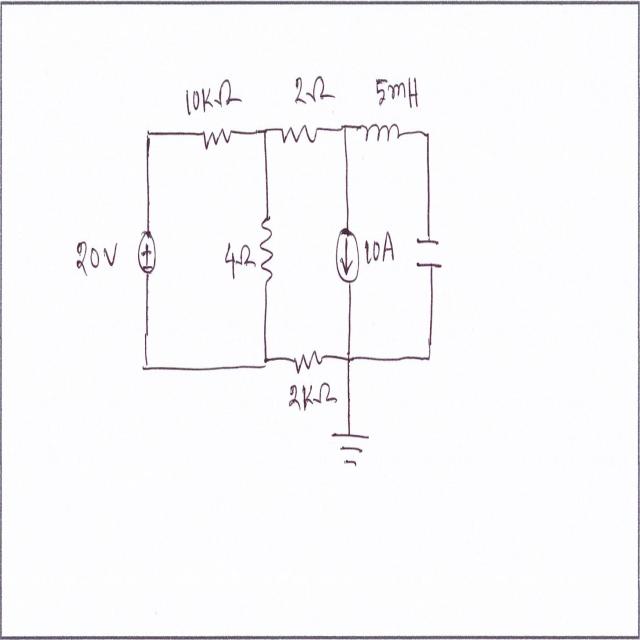 10KΩ 2Ω 5mH
20V 4Ω 10A
2KΩ